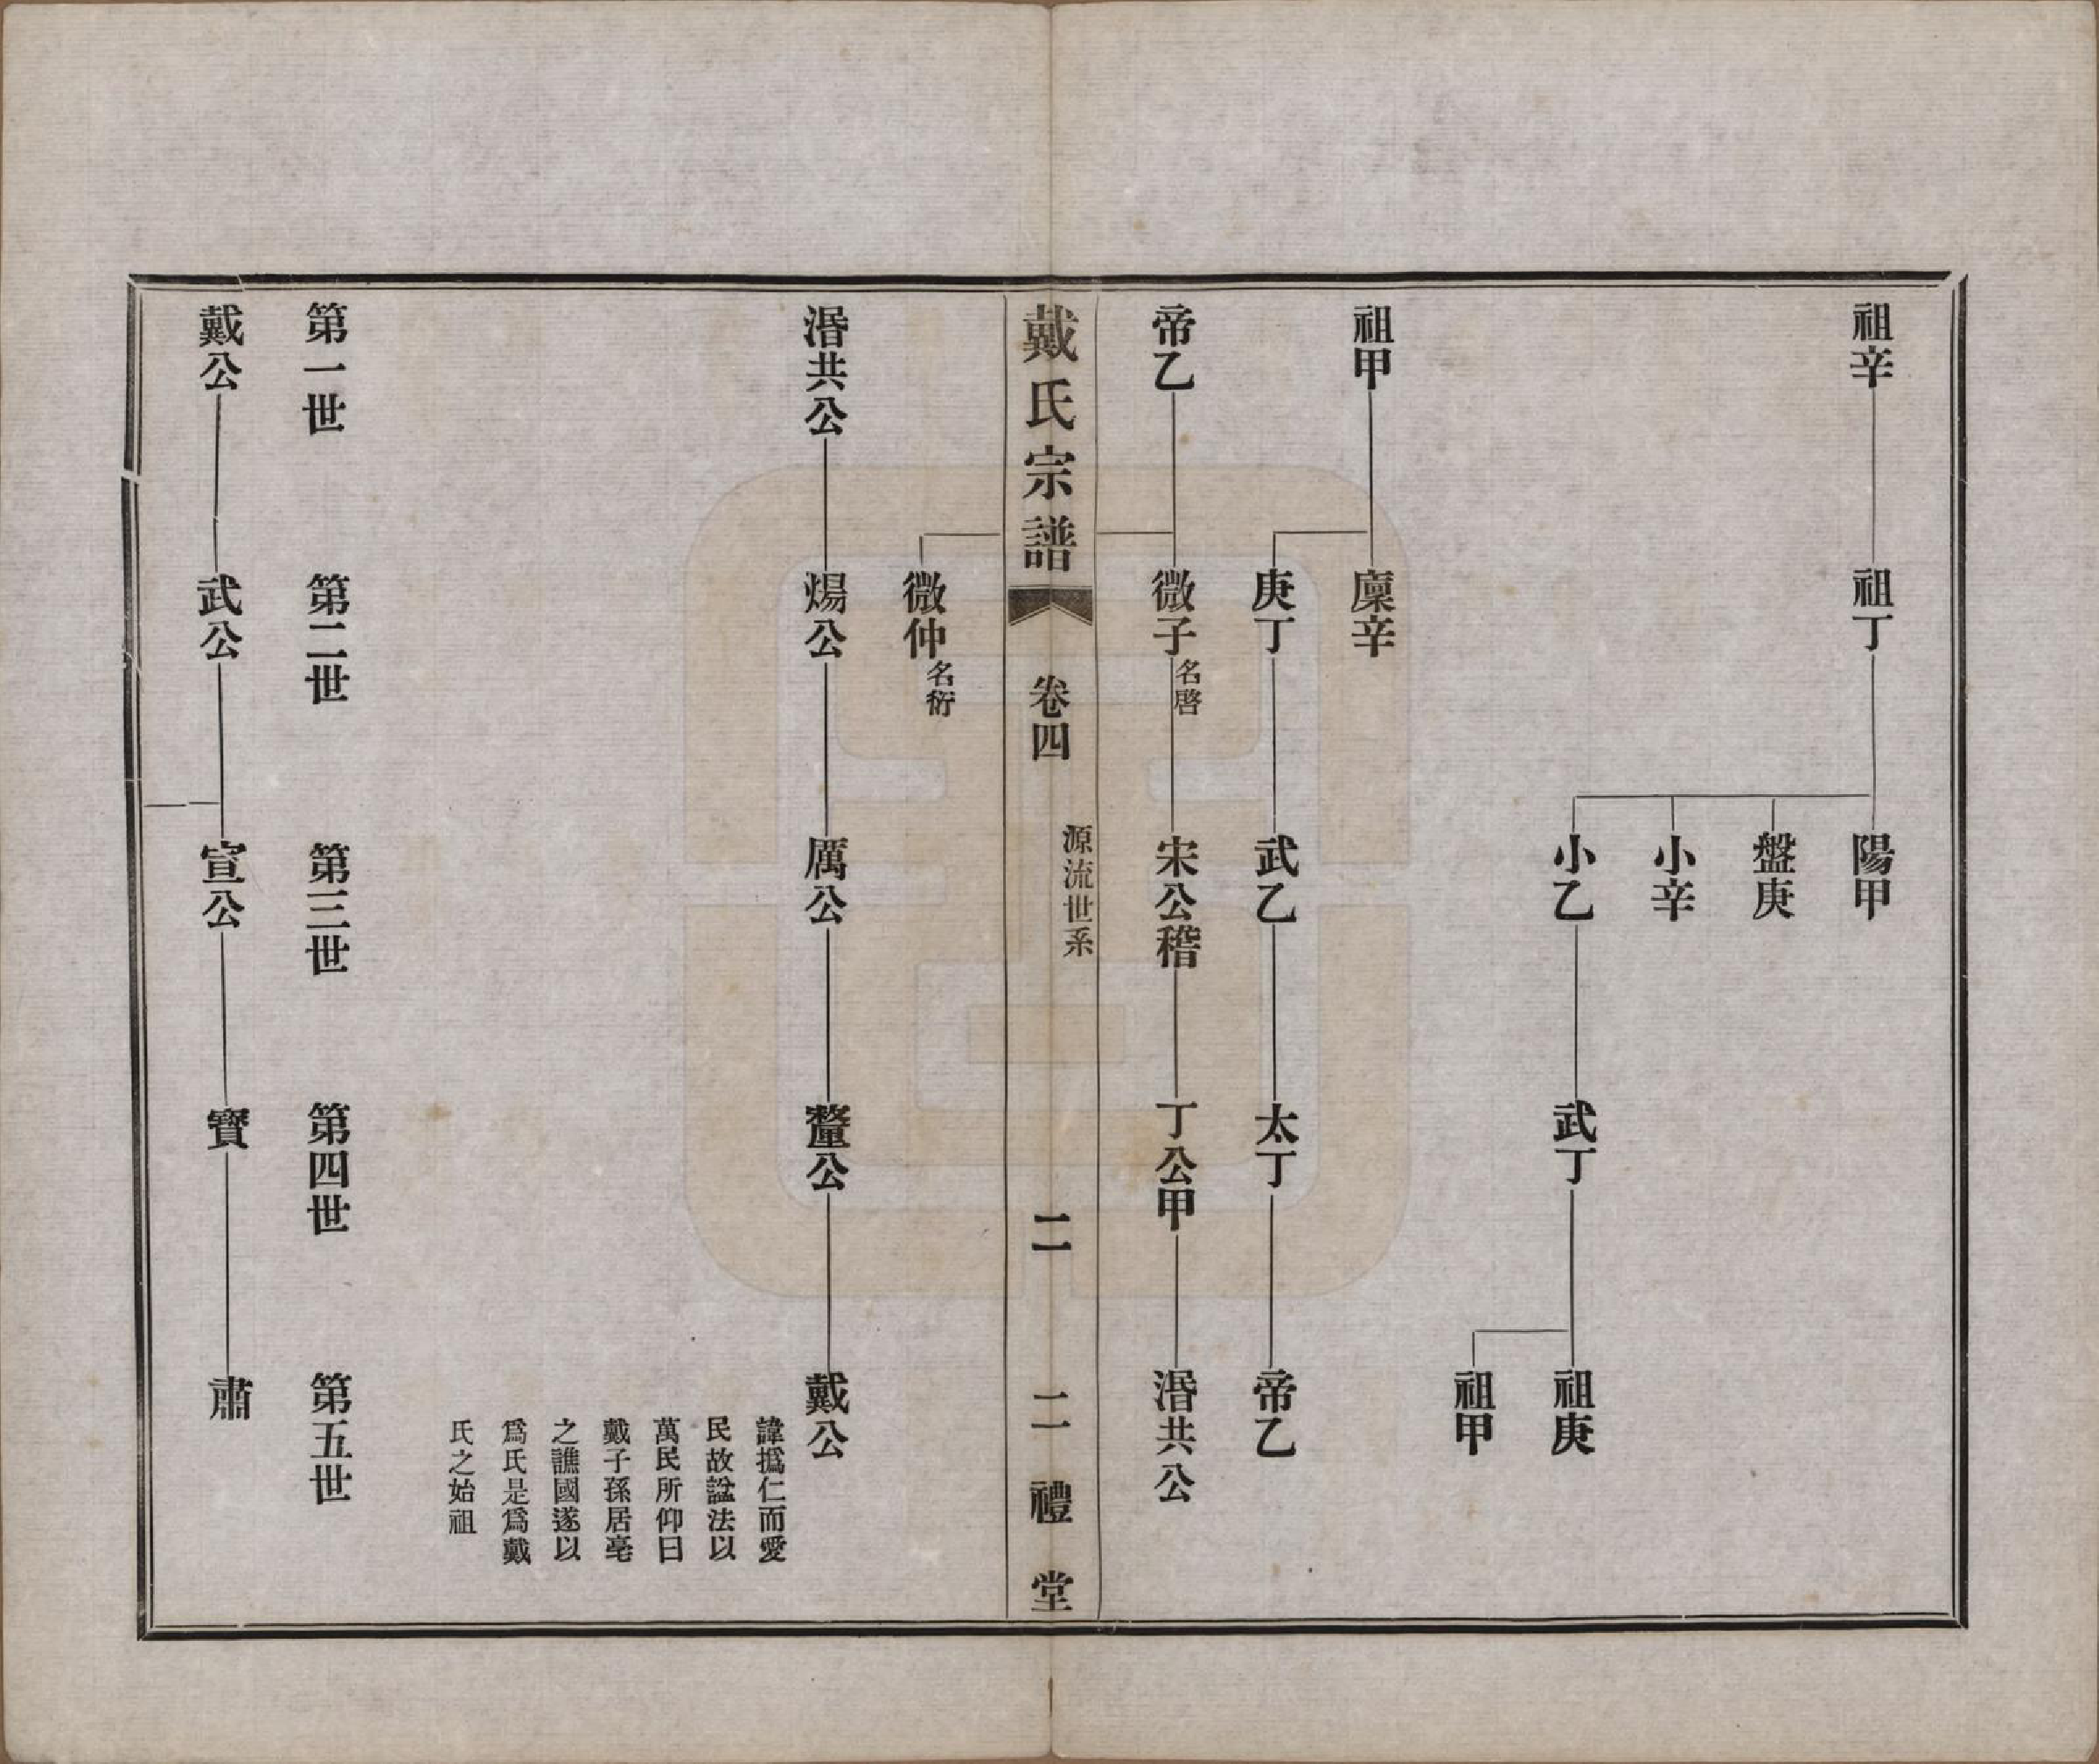 祖辛 祖丁 陽甲
盤庚
小辛
小乙 武丁 祖庚
祖甲
祖甲 廩辛
庚丁 武乙 太丁 帝乙
帝乙 微子 名啓 宋公稽 丁公甲 湣共公
戴氏宗譜 卷四 源流世系 二 二禮堂
微仲 名衍
湣共公 煬公 厲公 釐公 戴公
諱撝仁而愛
民故諡法以
萬民所仰曰
戴子孫居亳
之譙國遂以
爲氏是爲戴
氏之始祖
第一世 第二世 第三世 第四世 第五世
戴公 武公 宣公 寶 肅